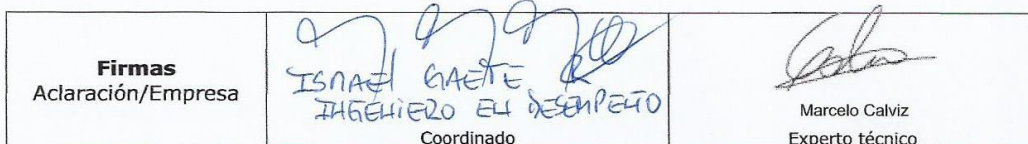 Firmas
Aclaración/Empresa
ISMAEL GAETE
INGENIERO EN DESEMPEÑO
Coordinado
Marcelo Calviz
Experto técnico